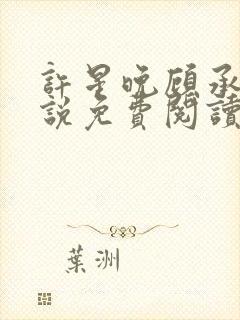 許星晚顧承
說免費閱讀
葉洲